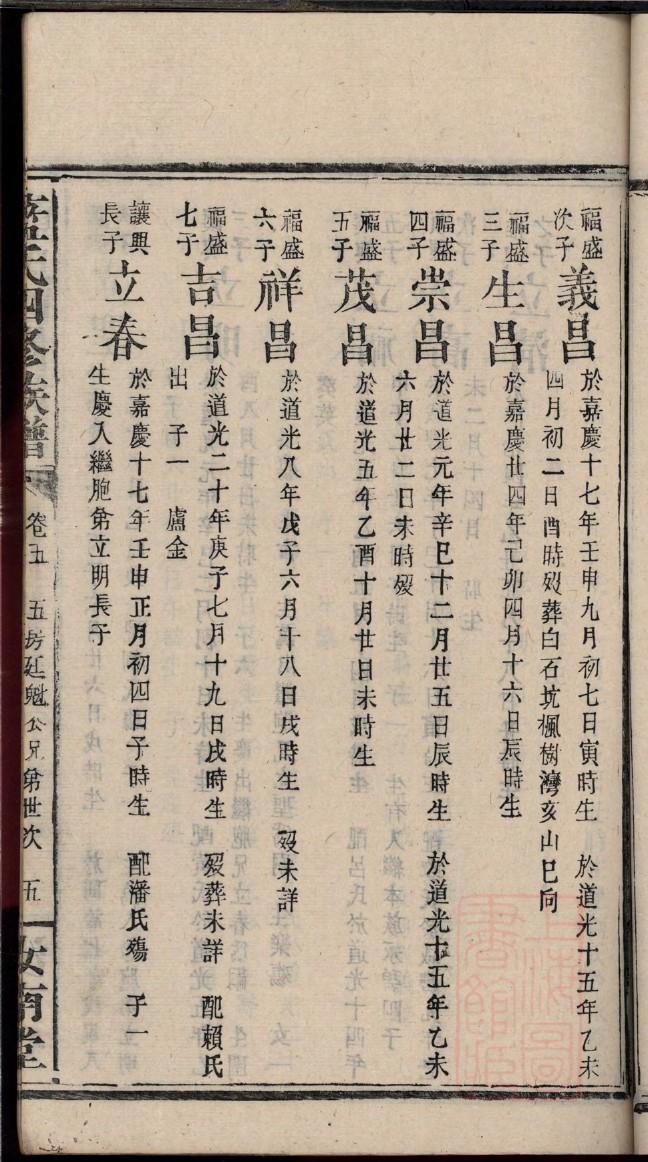 福盛
次子
義昌
於嘉慶十七年壬申九月初七日寅時生 於道光十五年乙未
四月初二日酉時歿葬白石坑楓樹灣亥山巳向
福盛
三子
生昌
於嘉慶廿四年己卯四月十六日辰時生
福盛
四子
崇昌
於道光元年辛巳十二月廿五日辰時生 於道光十五年乙未
六月廿二日未時歿
福盛
五子
茂昌
於道光五年乙酉十月廿日未時生
福盛
六子
祥昌
於道光八年戊子六月十八日戌時生 歿未詳
福盛
七子
吉昌
於道光二十年庚子七月十九日戌時生 歿葬未詳 配賴氏
出 子一 盧金
讓興
長子
立春
於嘉慶十七年壬申正月初四日子時生 配潘氏殤 子一
生慶入繼胞弟立明長子
氏四修族譜
卷五
五房廷魁公兄弟世次
五
汝南堂